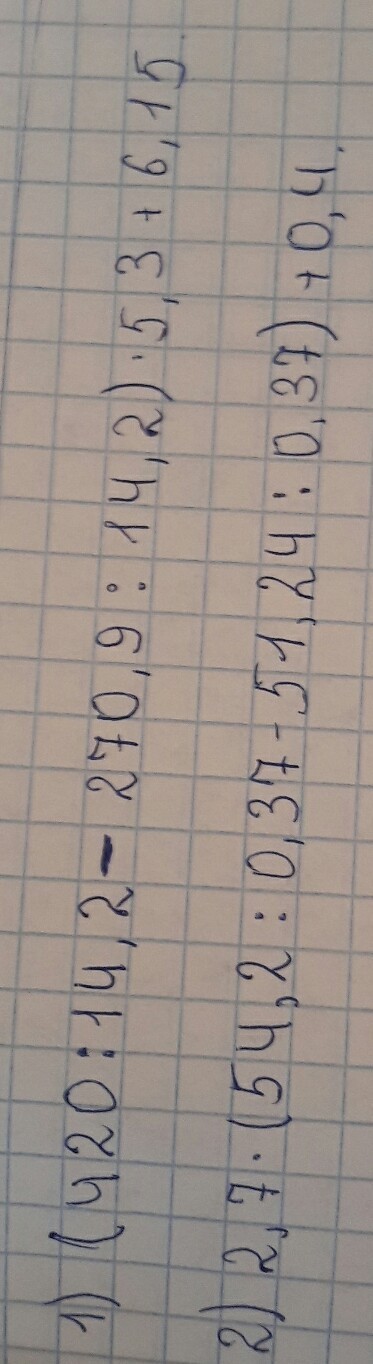 1) (420 : 14,2 - 270,9 : 14,2) · 5,3 + 6,15
2) 2,7 · (54,2 : 0,37 - 51,24 : 0,37) + 0,4.